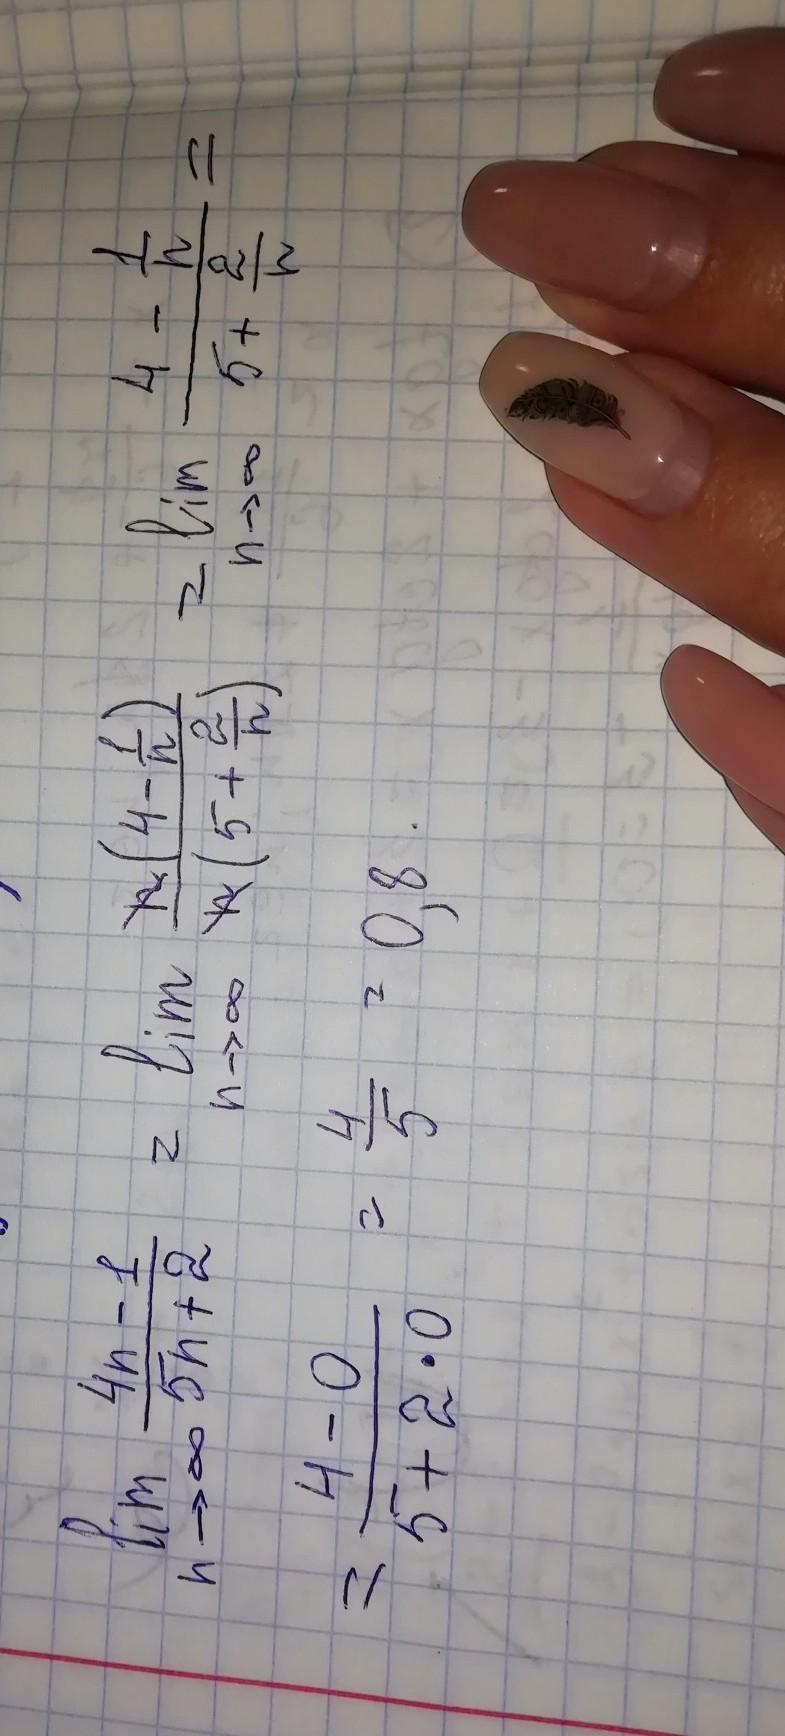 lim n→∞ (4n-1)/(5n+2) = lim n→∞ n(4 - 1/n)/n(5 + 2/n) = lim n→∞ (4 - 1/n)/(5 + 2/n) =
= (4-0)/(5+2·0) = 4/5 = 0,8.